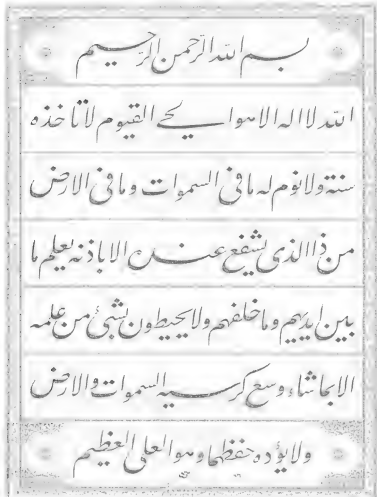 بسم الله الرحمن الرحیم
الله لا اله الا هو الحی القیوم لا تاخذه
سنة ولا نوم له ما فی السموات وما فی الارض
من ذا الذی یشفع عنده الا باذنه یعلم ما
بین ایدیهم وما خلفهم ولا یحیطون بشیئ من علمه
الا بما شاء وسع کرسیه السموات والارض
ولا یؤده حفظهما وهو العلی العظیم